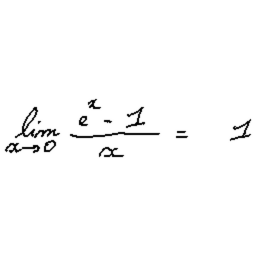 lim x→0 (e^x - 1)/x = 1